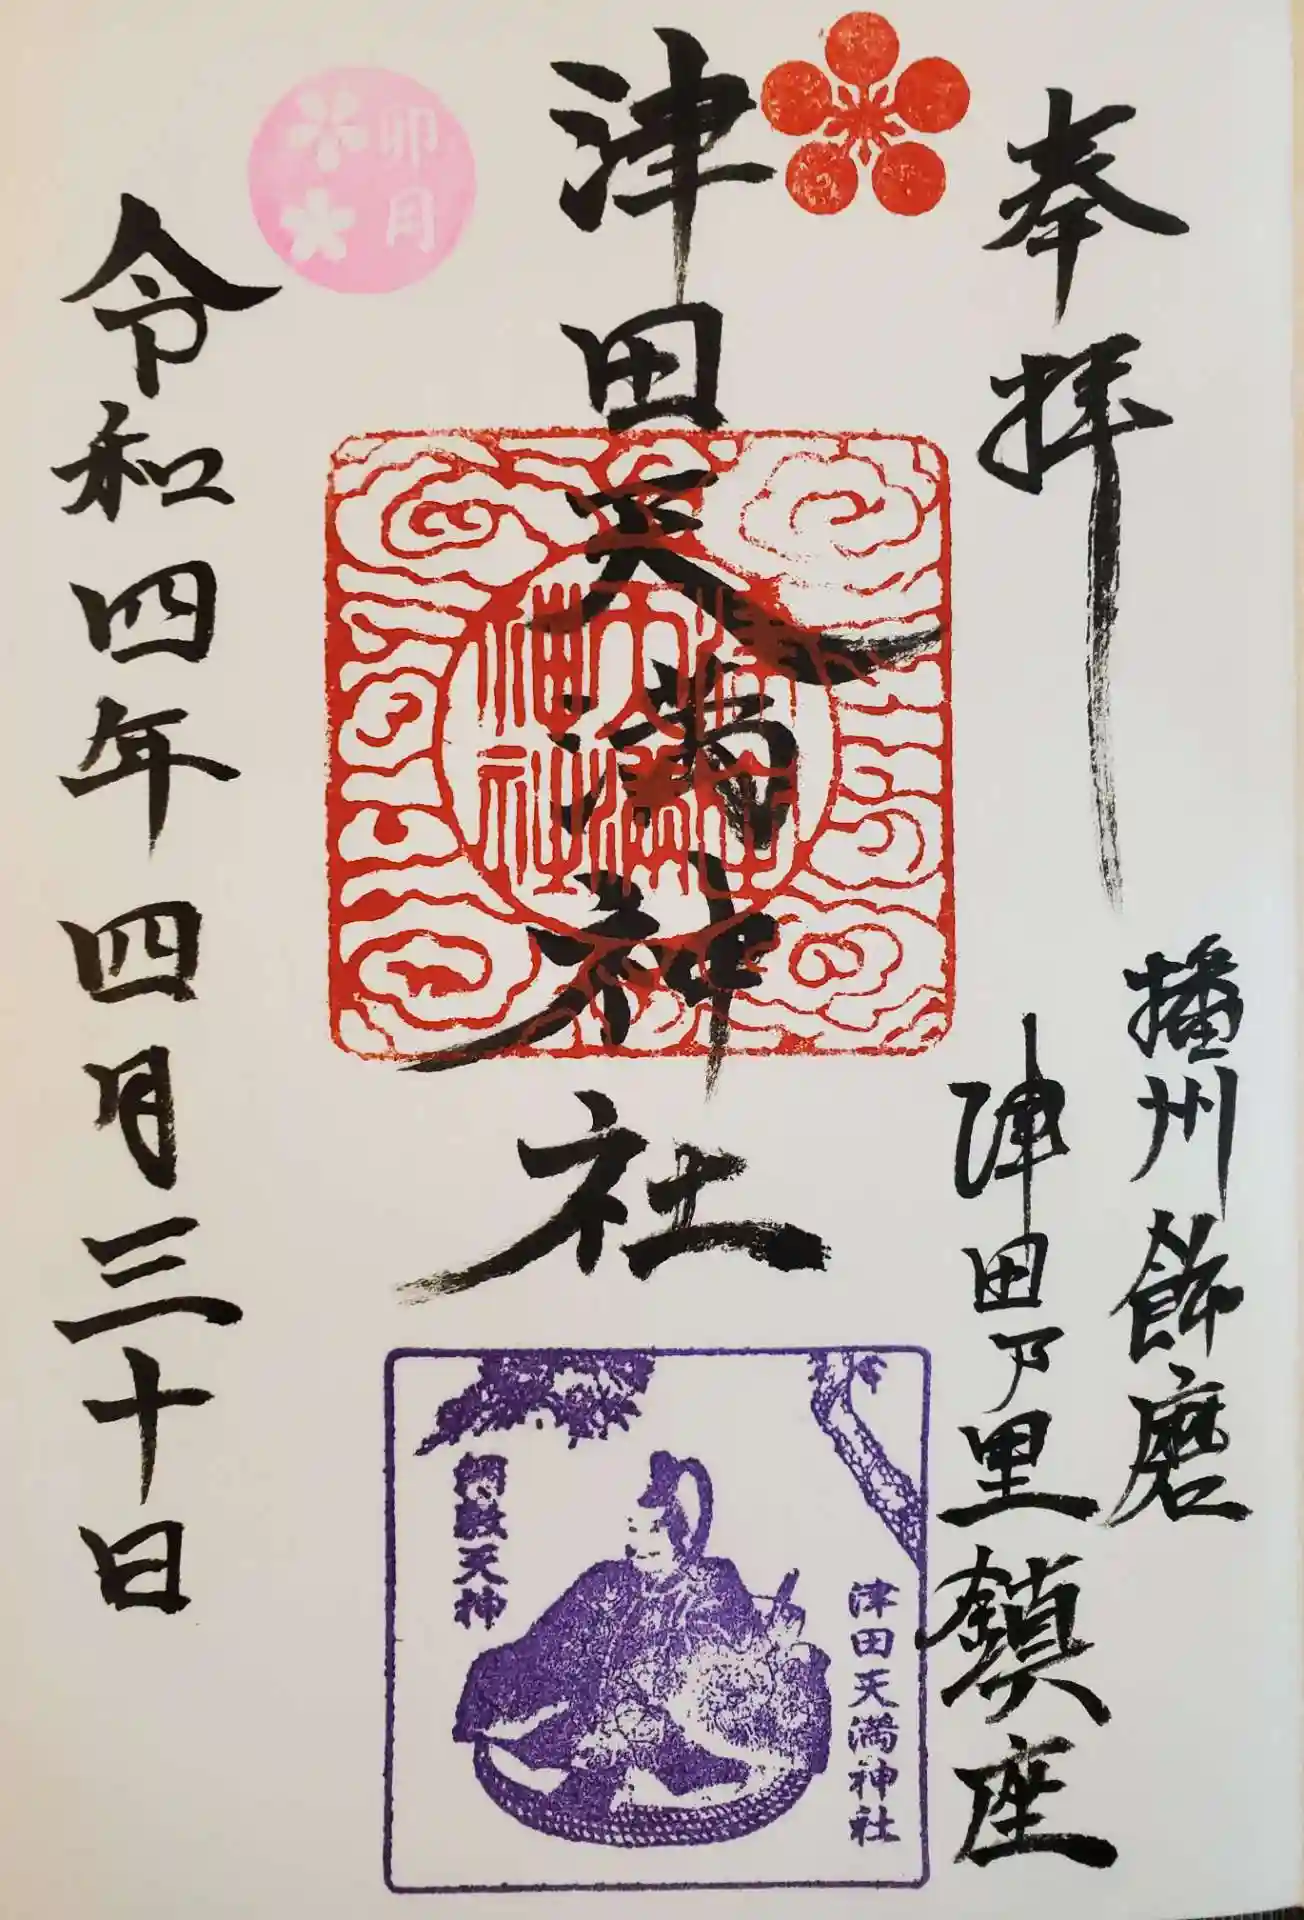 奉拝
播州飾磨
津田乃里鎮座
津田天満神社
津田天満神社
卯月
令和四年四月三十日
津田天満神社
綱敷天神